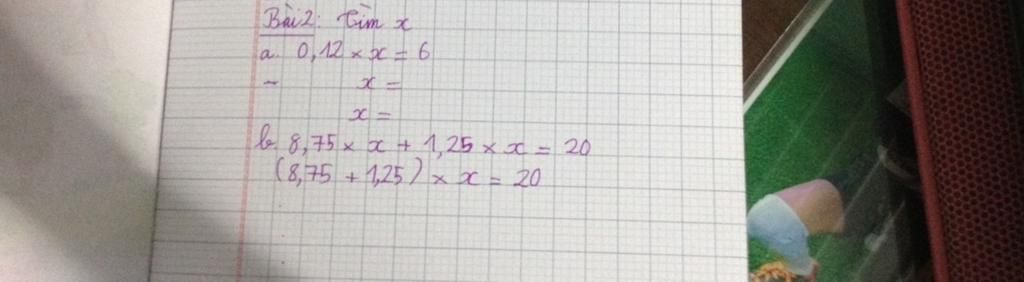 Bài 2: Tìm x
a. 0,12 × x = 6
x =
x =
b. 8,75 × x + 1,25 × x = 20
(8,75 + 1,25) × x = 20